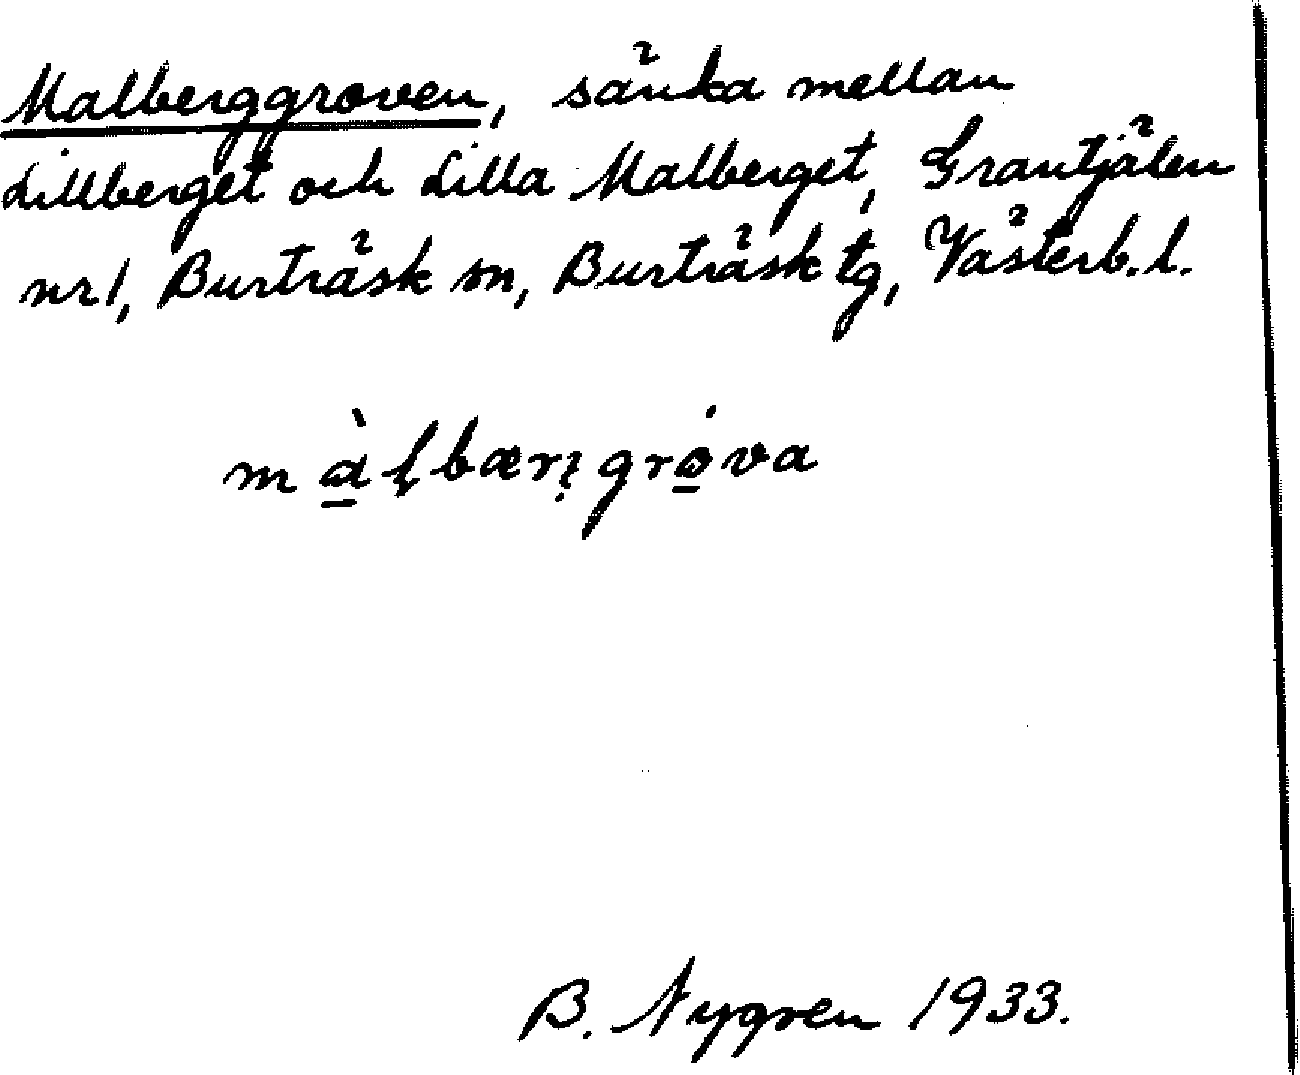 Malberggroven, sänka mellan
Lillberget och Lilla Malberget, Grantjälen
nr 1, Burträsk sn, Burträsk tg, Västerb. l.
B. Nygren 1933.